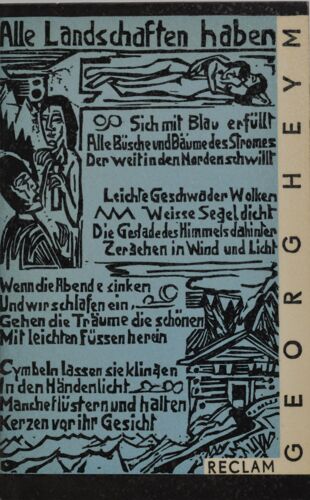 Alle Landschaften haben
Sich mit Blau erfüllt
Alle Büsche und Bäume des Stromes
Der weit in den Norden schwillt
Leichte Geschwader Wolken
Weisse Segel dicht
Die Gestade des Himmels dahinter
Zergehen in Wind und Licht
Wenn die Abende sinken
Und wir schlafen ein,
Gehen die Träume die schönen
Mit leichten füssen herein
Cymbeln lassen sie klingen
In den Händen licht
Manche flüstern und halten
Kerzen vor ihr Gesicht
RECLAM
GEORG HEYM